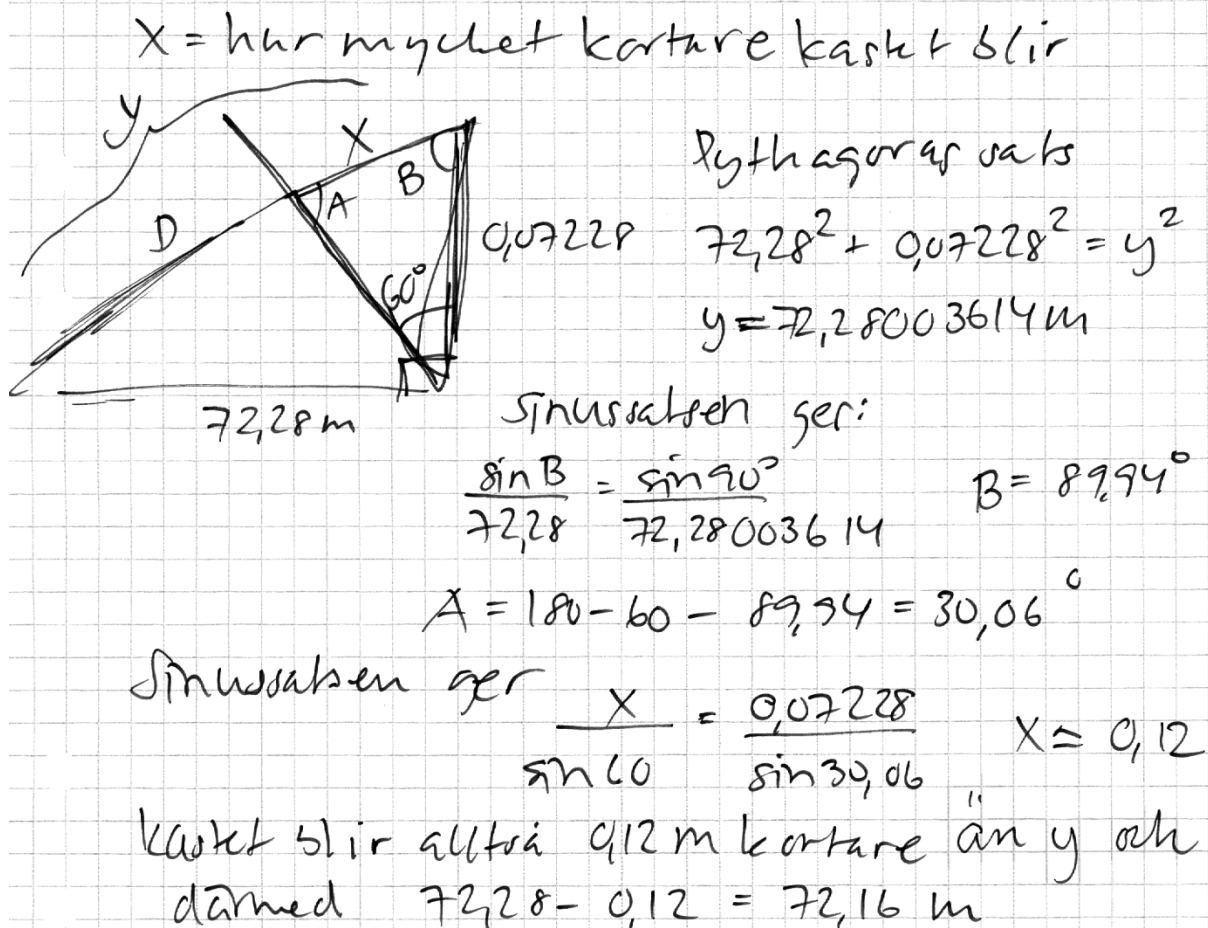 X = hur mycket kortare kastet blir
y
X
B
A
D
60°
0,07228
72,28 m
Pythagoras sats
72,28² + 0,07228² = y²
y = 72,28003614 m
Sinussatsen ger:
sin B / 72,28 = sin 90° / 72,28003614
B = 89,94°
A = 180 - 60 - 89,94 = 30,06°
Sinussatsen ger
X / sin 60 = 0,07228 / sin 30,06
X ≈ 0,12
kastet blir alltså 0,12 m kortare än y och
därmed 72,28 - 0,12 = 72,16 m